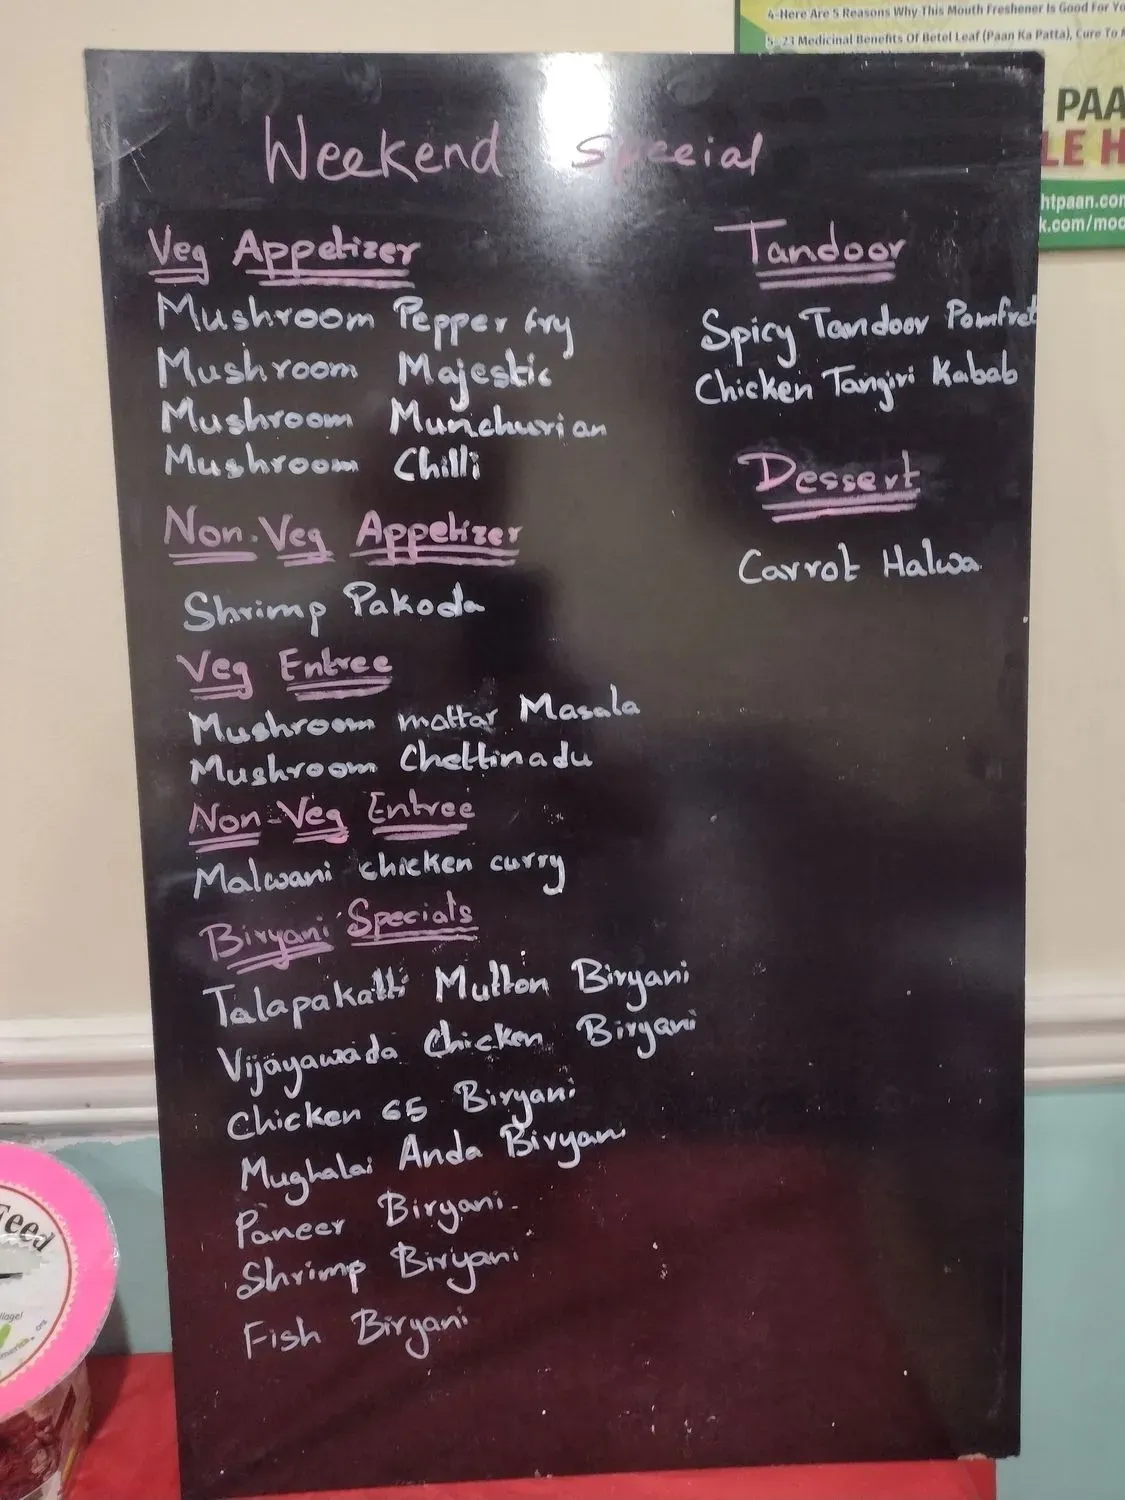 4-Here Are 5 Reasons Why This Mouth Freshener Is Good For
5-23 Medicinal Benefits Of Betel Leaf (Paan Ka Patta), Cure To
PAA
LE H
htpaan.com
k.com/moc
Weekend Special
Veg Appetizer
Mushroom Pepper fry
Mushroom Majestic
Mushroom Munchurian
Mushroom Chilli
Non-Veg Appetizer
Shrimp Pakoda
Veg Entree
Mushroom mattar Masala
Mushroom Chettinadu
Non-Veg Entree
Malwani chicken curry
Biryani Specials
Talapakatti Mutton Biryani
Vijayawada Chicken Biryani
Chicken 65 Biryani
Mughalai Anda Biryani
Paneer Biryani
Shrimp Biriyani
Fish Biryani
Tandoor
Spicy Tandoor Pomfret
Chicken Tangiri Kabab
Dessert
Carrot Halwa
Feed